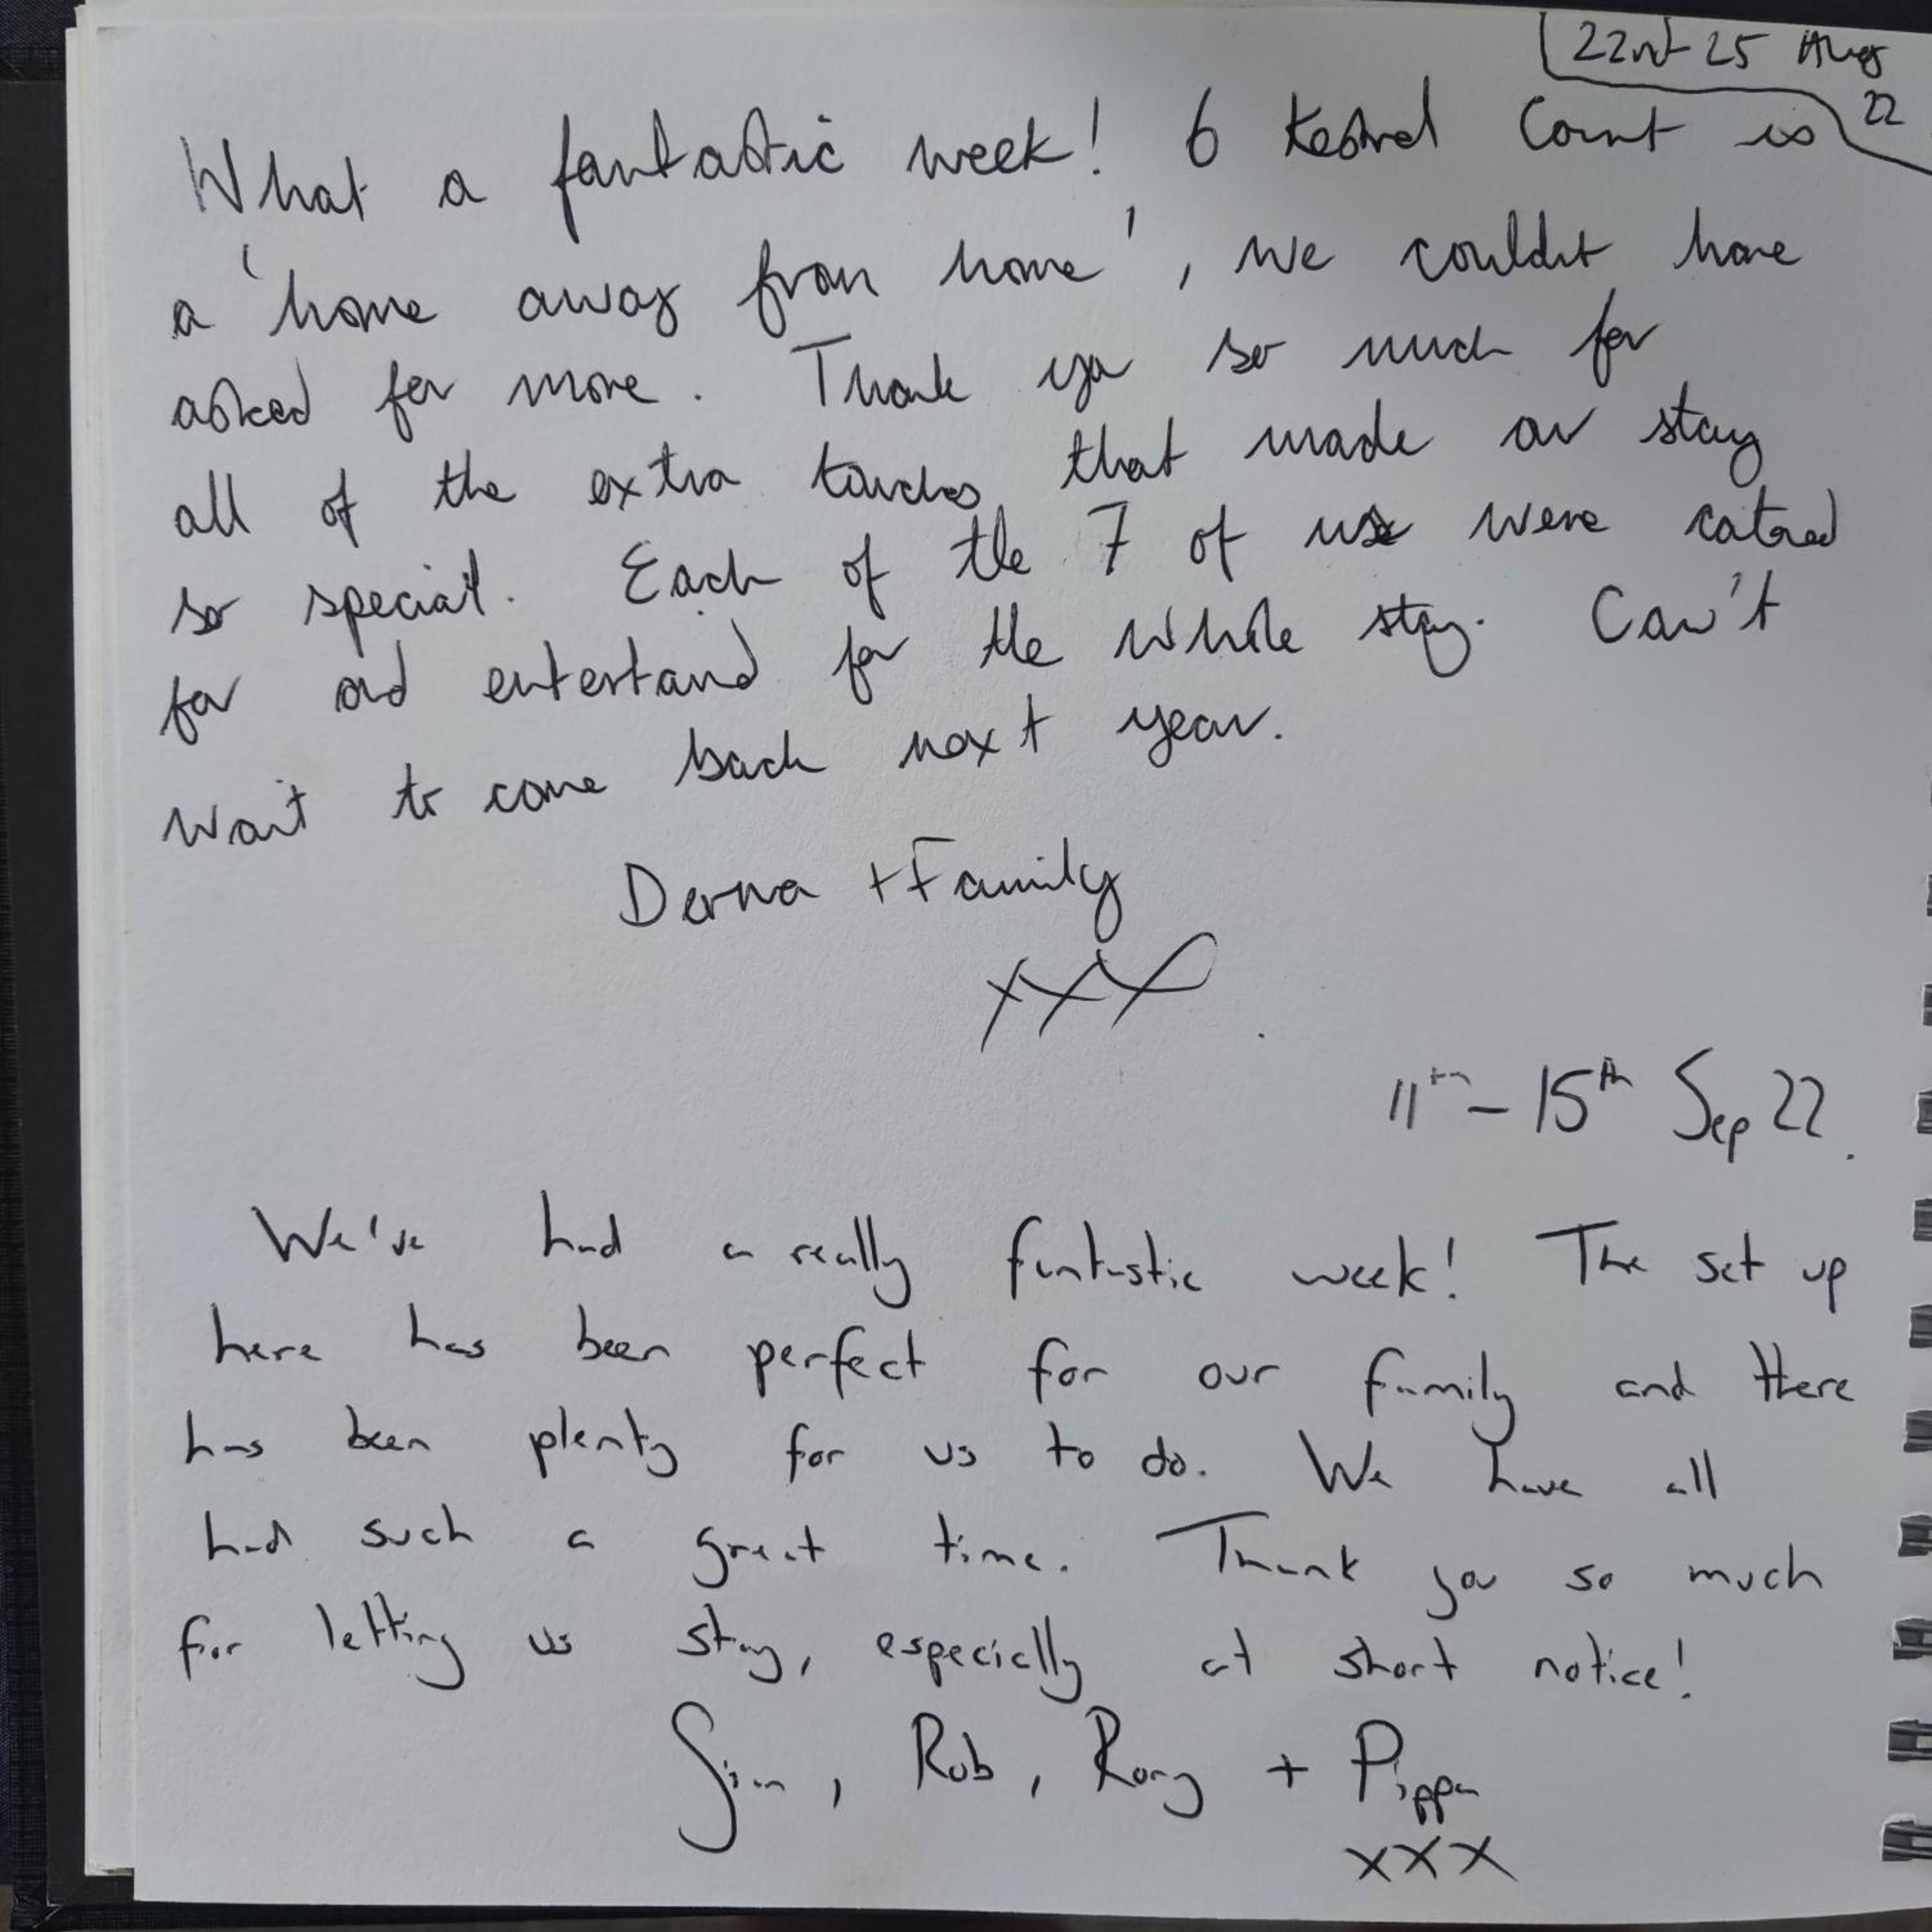 22nd-25 Aug
22
What a fantastic week! 6 Kestrel Court is
a 'home away from home', we couldnt have
asked for more. Thank you so much for
all of the extra touches that made our stay
so special. Each of the 7 of us were catered
for and entertand for the whole stay. Can't
wait to come back next year.
+ Family
xxx
11th - 15th Sep 22.
We've had a really fantastic week! The set up
here has been perfect for our family and there
has been plenty for us to do. We have all
had such a great time. Thank you so much
for letting us stay, especially at short notice!
Rob, Rory + Pippa
xxx